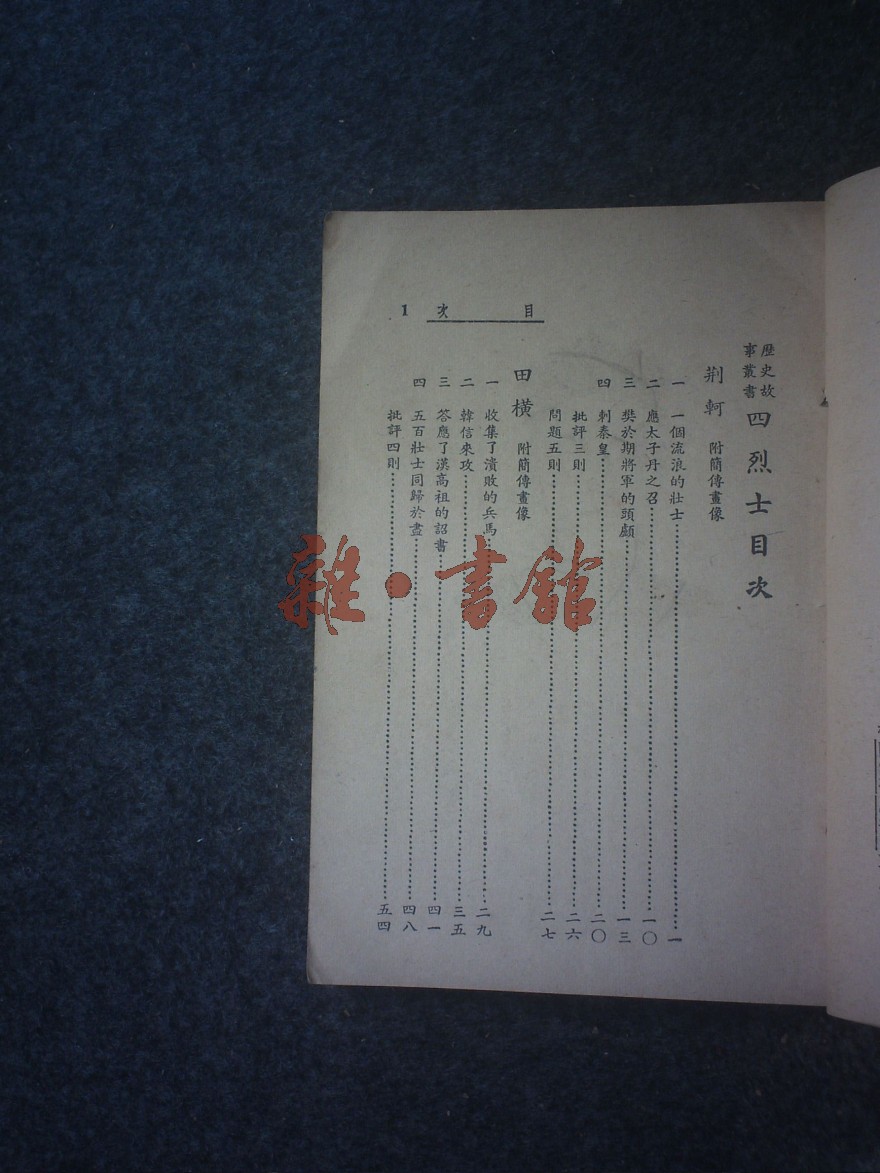 歷史故
事叢書
四烈士目次
荆軻 附簡傳畫像
一 一個流浪的壯士……一
二 應太子丹之召……一〇
三 樊於期將軍的頭顱……一三
四 刺秦皇……二〇
批評三則……二六
問題五則……二七
田橫 附簡傳畫像
一 收集了潰敗的兵馬……二九
二 韓信來攻……三五
三 答應了漢高祖的詔書……四一
四 五百壯士同歸於盡……四八
批評四則……五四
目次 1
雜·書館